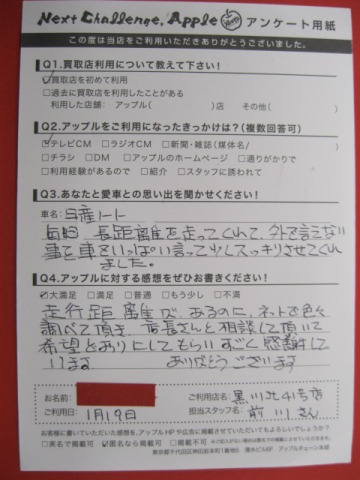 Next Challenge, Apple アンケート用紙
この度は当店をご利用いただきありがとうございました。
Q1.買取店利用について教えて下さい!
☑買取店を初めて利用
□過去に買取店を利用したことがある
利用した店舗: アップル( )店 その他( )
Q2.アップルをご利用になったきっかけは?(複数回答可)
☑テレビCM □ラジオCM □新聞・雑誌(媒体名/ )
□チラシ □DM □アップルのホームページ □通りがかりで
□利用経験があるので □紹介 □スタッフに誘われて
Q3.あなたと愛車との思い出を聞かせください!
車名: 日産ノート
毎日 長距離を走ってくれて、外で言えない
事を車でいっぱい言って少しスッキリさせてくれ
ました。
Q4.アップルに対する感想をぜひお書きください!
☑大満足 □満足 □普通 □もう少し □不満
走行距離がズ あるのに、ネットで色々
調べて頂き 店長さんと相談して頂いて
希望どおりにしてもらいすごく感謝して
います ありがとうございます
お名前:
ご利用日: 1月19日
ご利用店名: 黒川北41号店
担当スタッフ名: 前川さん
お客様に書いていただいた感想を、アップルHPや広告に掲載させていただいてもよろしいでしょうか?
□実名で掲載可 ☑匿名なら掲載可 □掲載不可
東京都千代田区神田岩本町1番地6 清水ビル8F アップルチェーン本部